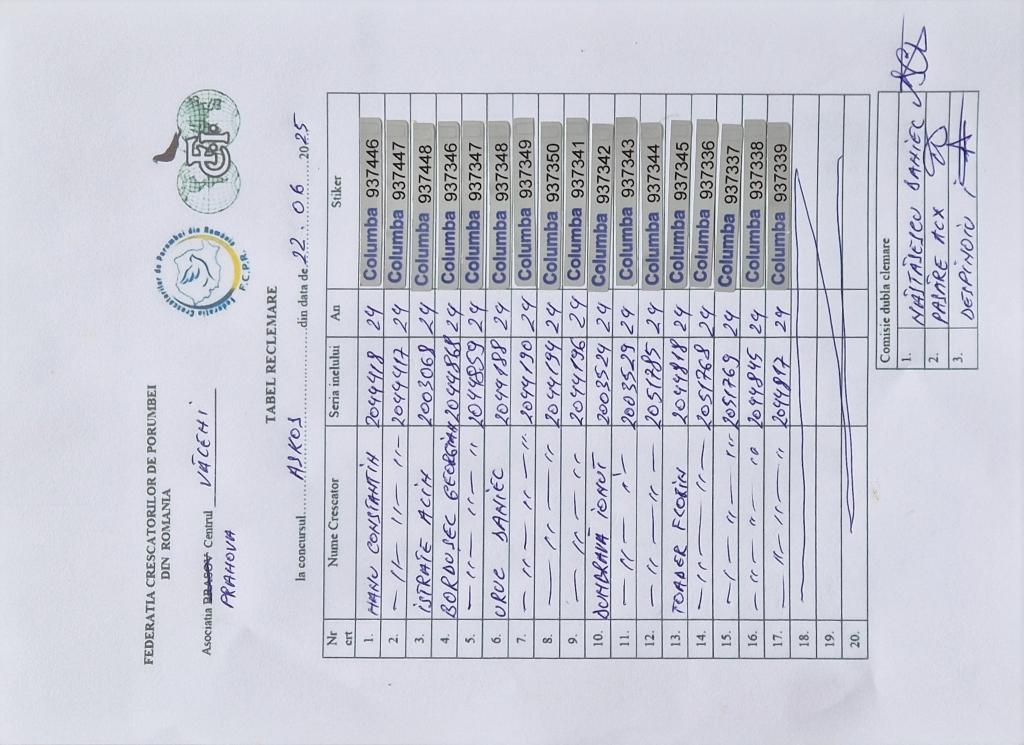 FEDERATIA CRESCATORILOR DE PORUMBEI
DIN ROMANIA
Asociatia BRASOV Centrul VĂLENI
PRAHOVA
Federatia Crescatorilor de Porumbei din România
F.C.P.R.
TABEL RECLEMARE
la concursul ASKOS din data de 22.06.2025
Nr crt Nume Crescator Seria inelului An Stiker
1. MANU CONSTANTIN 2044418 24 Columba 937446
2. — 11 — 11 — 11 — 2044417 24 Columba 937447
3. ISTRATE ALIN 2003068 24 Columba 937448
4. BORDUSEL GEORGIAN 2044868 24 Columba 937346
5. — 11 — 11 — 11 2044859 24 Columba 937347
6. URUC DANIEL 2044188 24 Columba 937348
7. — 11 — 11 — 11 2044190 24 Columba 937349
8. — 11 — 11 2044194 24 Columba 937350
9. — 11 — 11 2044196 24 Columba 937341
10. DUMBRAVA IONUT 2003524 24 Columba 937342
11. — 11 — 11 2003529 24 Columba 937343
12. — 11 — 11 2051785 24 Columba 937344
13. TOADER FLORIN 2044818 24 Columba 937345
14. — 11 — 11 — 2051768 24 Columba 937336
15. — 11 — 11 2051769 24 Columba 937337
16. — 11 — 11 2044845 24 Columba 937338
17. — 11 — 11 — 11 2044817 24 Columba 937339
18.
19.
20.
Comisie dubla clemare
1. DANIEL
2. PASĂRE ALX
3. DESPINOIU